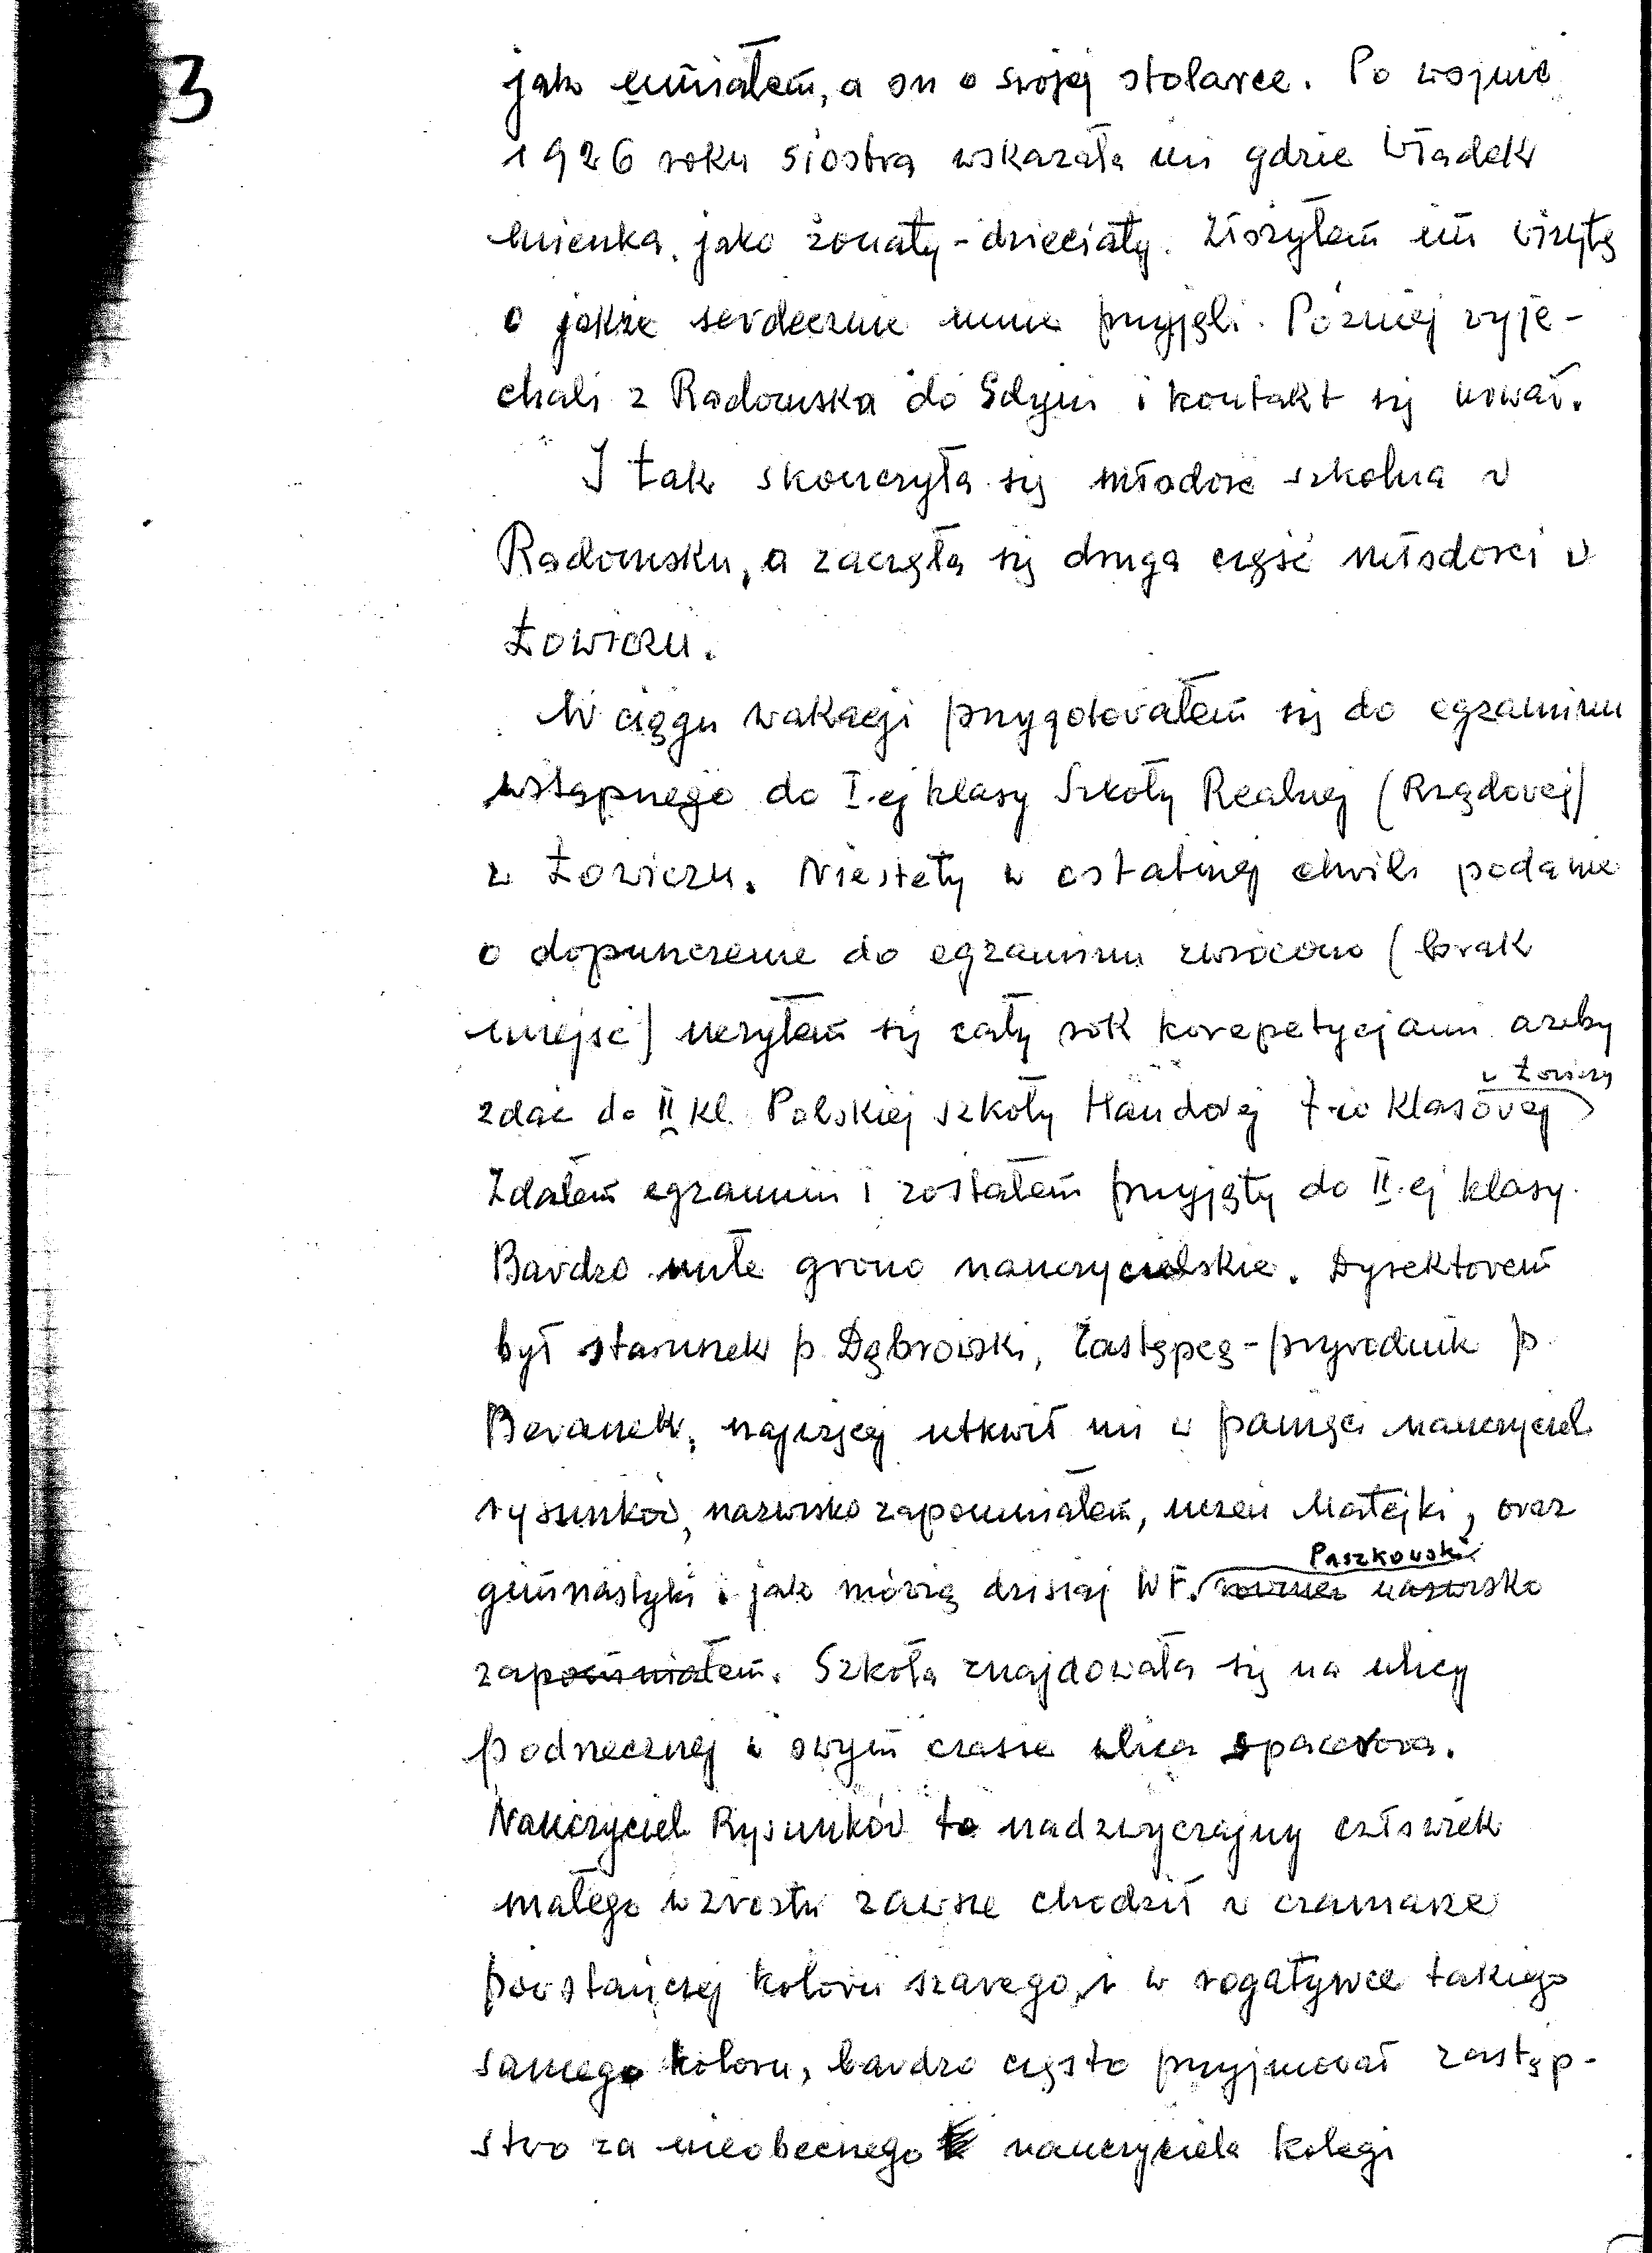 3
jak umiałem, a on o swojej stolarce. Po wojnie
1926 roku siostra wskazała mi gdzie Władek
mieszka, jako żonaty-dzieciaty. Złożyłem im wizytę
o jakże serdecznie mnie przyjęli. Później wyje-
chali z Radomska do Gdyni i kontakt się urwał.
I tak skończyła się młodość szkolna w
Radomsku, a zaczęła się druga część młodości w
Łowiczu.
W ciągu wakacji przygotowałem się do egzaminu
wstępnego do I.ej klasy Szkoły Realnej (Rządowej)
w Łowiczu. Niestety w ostatniej chwili podanie
o dopuszczenie do egzaminu zwrócono (brak
miejsc) uczyłem się cały rok korepetycjami ażeby
w Łowiczu
zdać do II kl. Polskiej szkoły Handowej 7-io klasowej
Zdałem egzamin i zostałem przyjęty do II.ej klasy.
Bardzo miłe grono nauczycielskie. Dyrektorem
był staruszek p. Dąbrowski, Zastępcą-przyrodnik p.
Baranek, najwięcej utkwił mi w pamięci nauczyciel
rysunków, nazwisko zapomniałem, uczeń Matejki, oraz
Paszkowski
gimnastyki i jak mówią dzisiaj WF. również nazwisko
zapomniałem. Szkoła znajdowała się na ulicy
podrzecznej w swym czasie ulica spacerowa.
Nauczyciel Rysunków to nadzwyczajny człowiek
małego wzrostu zawsze chodził w czamarze
powstańczej koloru szarego, i w rogatywce takiego
samego koloru, bardzo często przyjmował zastęp-
stwo za nieobecnego nauczyciela kolegi